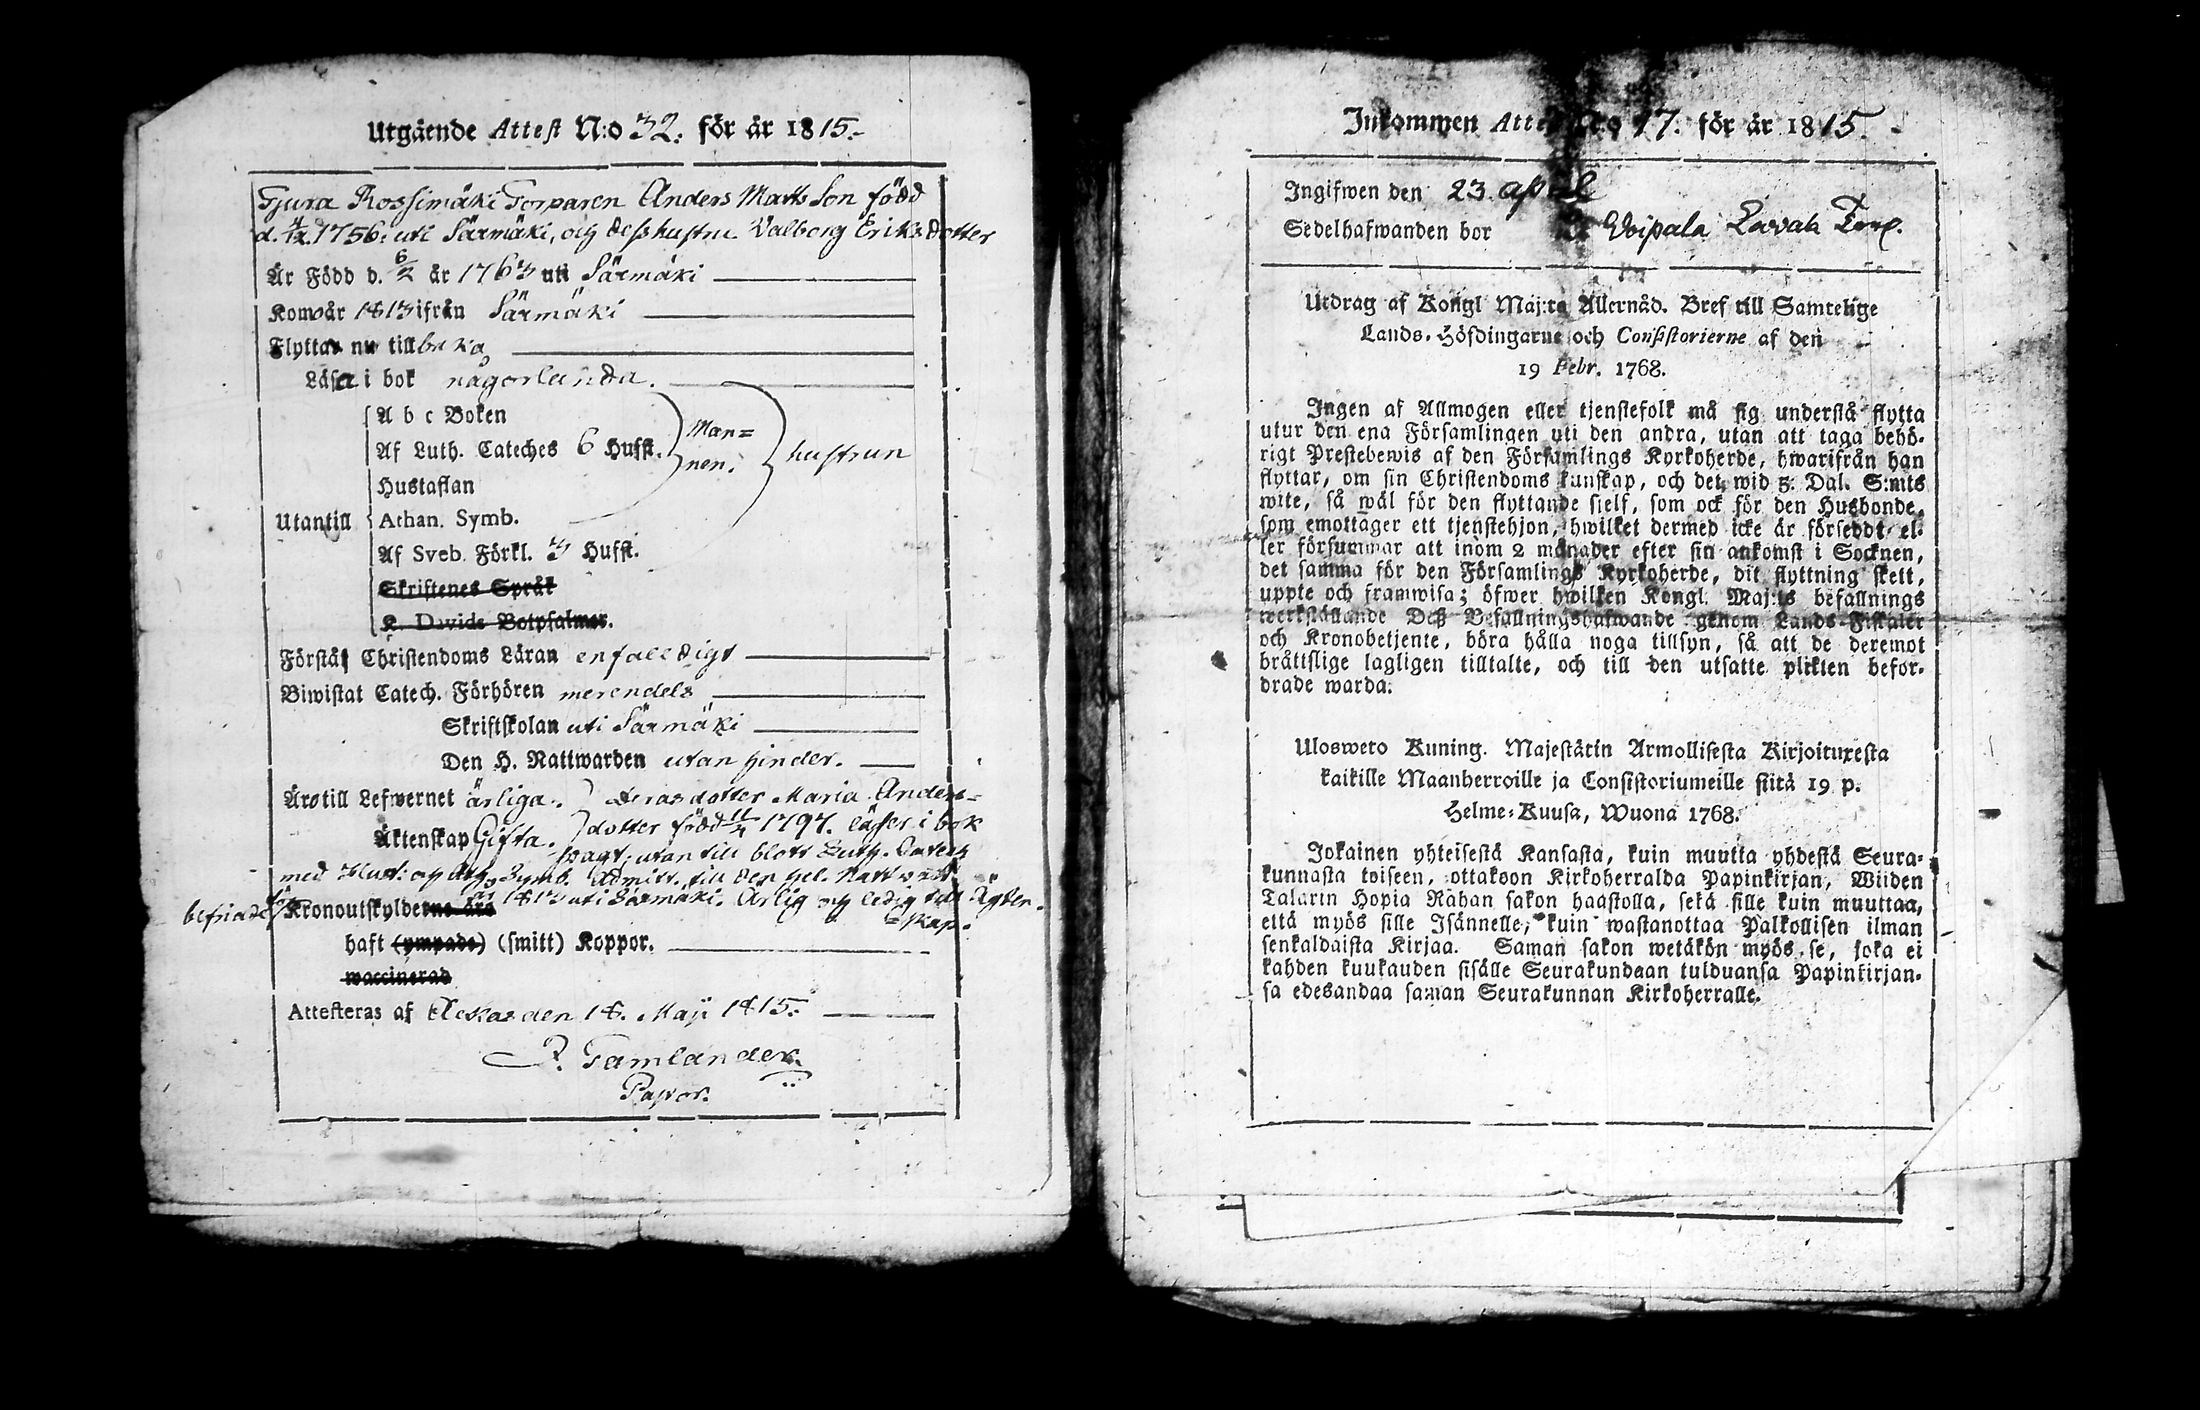 Utgående Attest N:o 32. för år 1815.-
Tjura Rossimäki Torparen Anders Matts Son född
d. 1756. uti Särmäki, och dess hustru Valborg Eriks Dotter
Är Född d. 6/2 år 1763 uti Särmäki
Kom år 1813 ifrån Särmäki
Flyttar nu tillbaka
Läsa i bok någorlunda.
A b c Boken
Af Luth. Cateches 6 Hufst. Man=
nen. hustrun
Hustaflan
Utantill Athan. Symb.
Af Sveb. Förkl. 3 Hufst.
Skriftenes Språk
K. Davids Botpsalmer.
Förstå Christendoms Läran enfaldigt
Biwistat Catech. Förhören merendels
Skriftskolan uti Särmäki
Den H. Nattwarden utan hinder.
Äro till Lefwernet ärliga. Deras dotter Maria Anders=
Äktenskap Gifta. dotter född 1797. läser i bok
svagt, utan till blott Luth. Catech
med Hust. og Ath. Symb. Admitt. till den hel. Nattvard
år 1813 uti Särmäki. Ärlig og ledig till Ägten=
befriade för Kronoutskylderne äro =skap.
haft (ympade) (smitt) Koppor.
waccinerad
Attesteras af Akas den 18. Maji 1815.
P. Tamlander
Pastor.
Inkommen Attest N:o 17. för år 1815.
Ingifwen den 23. April
Sedelhafwanden bor Woipala Torp.
Utdrag af Kongl Maj:ts Allernåd. Bref till Samtelige
Lands-Höfdingarne och Consistorierne af den
19 Febr. 1768.
Ingen af Allmogen eller tjenstefolk må sig understå flytta
utur den ena Församlingen uti den andra, utan att taga behö-
rigt Prestebewis af den Församlings Kyrkoherde, hwarifrån han
flyttar, om sin Christendoms kunskap, och det wid 5. Dal. S:mts
wite, så wäl för den flyttande sielf, som ock för den Husbonde,
som emottager ett tjenstehjon, hwilket dermed icke är försedt el-
ler försummar att inom 2 månader efter sin ankomst i Socknen,
det samma för den Församlings Kyrkoherde, dit flyttning skett,
uppte och framwisa; öfwer hwilken Kongl. Maj:ts befallnings
werkställande Deß Befallningshafwande genom Lands-Fiskaler
och Kronobetjente, böra hålla noga tillsyn, så att de deremot
bråttslige lagligen tilltalte, och till den utsatte plikten befor-
drade warda.
Ulosweto Kuning. Majestätin Armollisesta Kirjoituxesta
kaikille Maanherroille ja Consistoriumeille siitä 19 p.
Helme-Kuusa, Wuona 1768.
Jokainen yhteisestä Kansasta, kuin muutta yhdestä Seura-
kunnasta toiseen, ottakoon Kirkoherralda Papinkirjan, Wiiden
Talarin Hopia Rahan sakon haastolla, sekä sille kuin muuttaa,
että myös sille Isännelle, kuin wastanottaa Palkollisen ilman
senkaldaista Kirjaa. Saman sakon wetäkön myös se, joka ei
kahden kuukauden sisälle Seurakundaan tulduansa Papinkirjan-
sa edesandaa saman Seurakunnan Kirkoherralle.